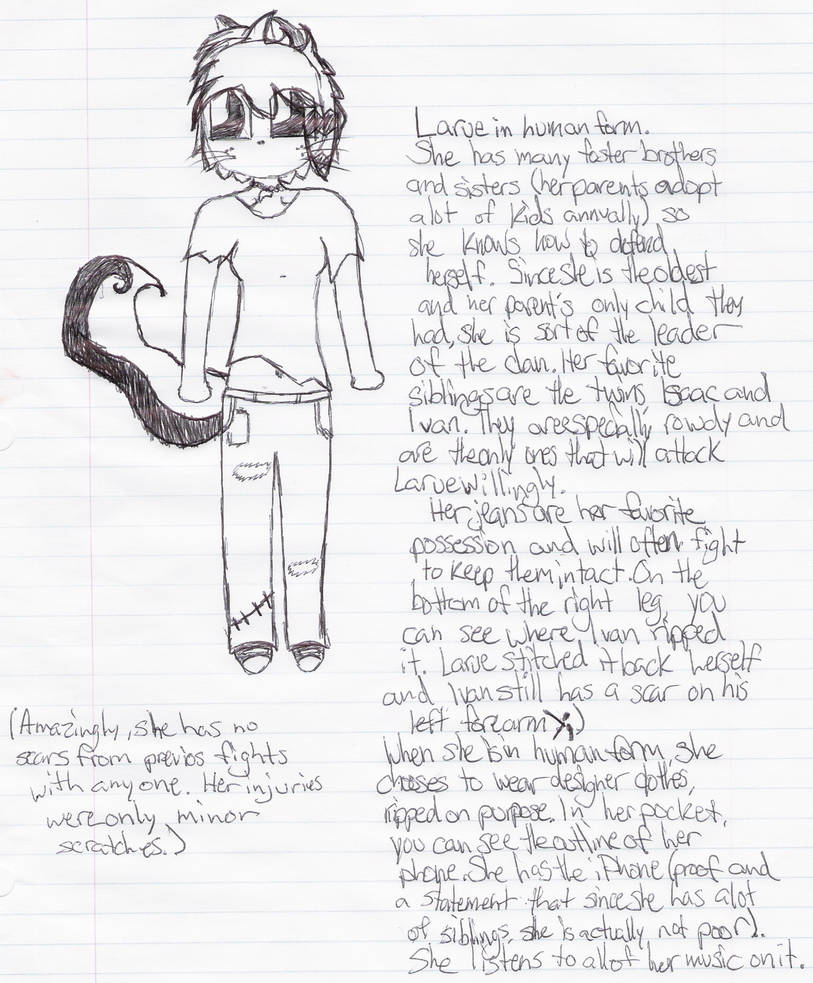 Larue in human form.
She has many foster brothers
and sisters (her parents adopt
alot of kids annually) so
she knows how to defend
herself. Since she is the oldest
and her parent's only child they
had, she is sort of the leader
of the clan. Her favorite
siblings are the twins Isaac and
Ivan. They are especially rowdy and
are the only ones that will attack
Larue willingly.
Her jeans are her favorite
possession and will often fight
to keep them intact. On the
bottom of the right leg, you
can see where Ivan ripped
it. Larue stitched it back herself
and Ivan still has a scar on his
left forearm
When she is in human form, she
chooses to wear designer clothes,
ripped on purpose. In her pocket,
you can see the outline of her
phone. She has the iPhone (proof and
a statement that since she has alot
of siblings, she is actually not poor).
She listens to all of her music on it.
(Amazingly, she has no
scars from previos fights
with anyone. Her injuries
were only minor
scratches.)